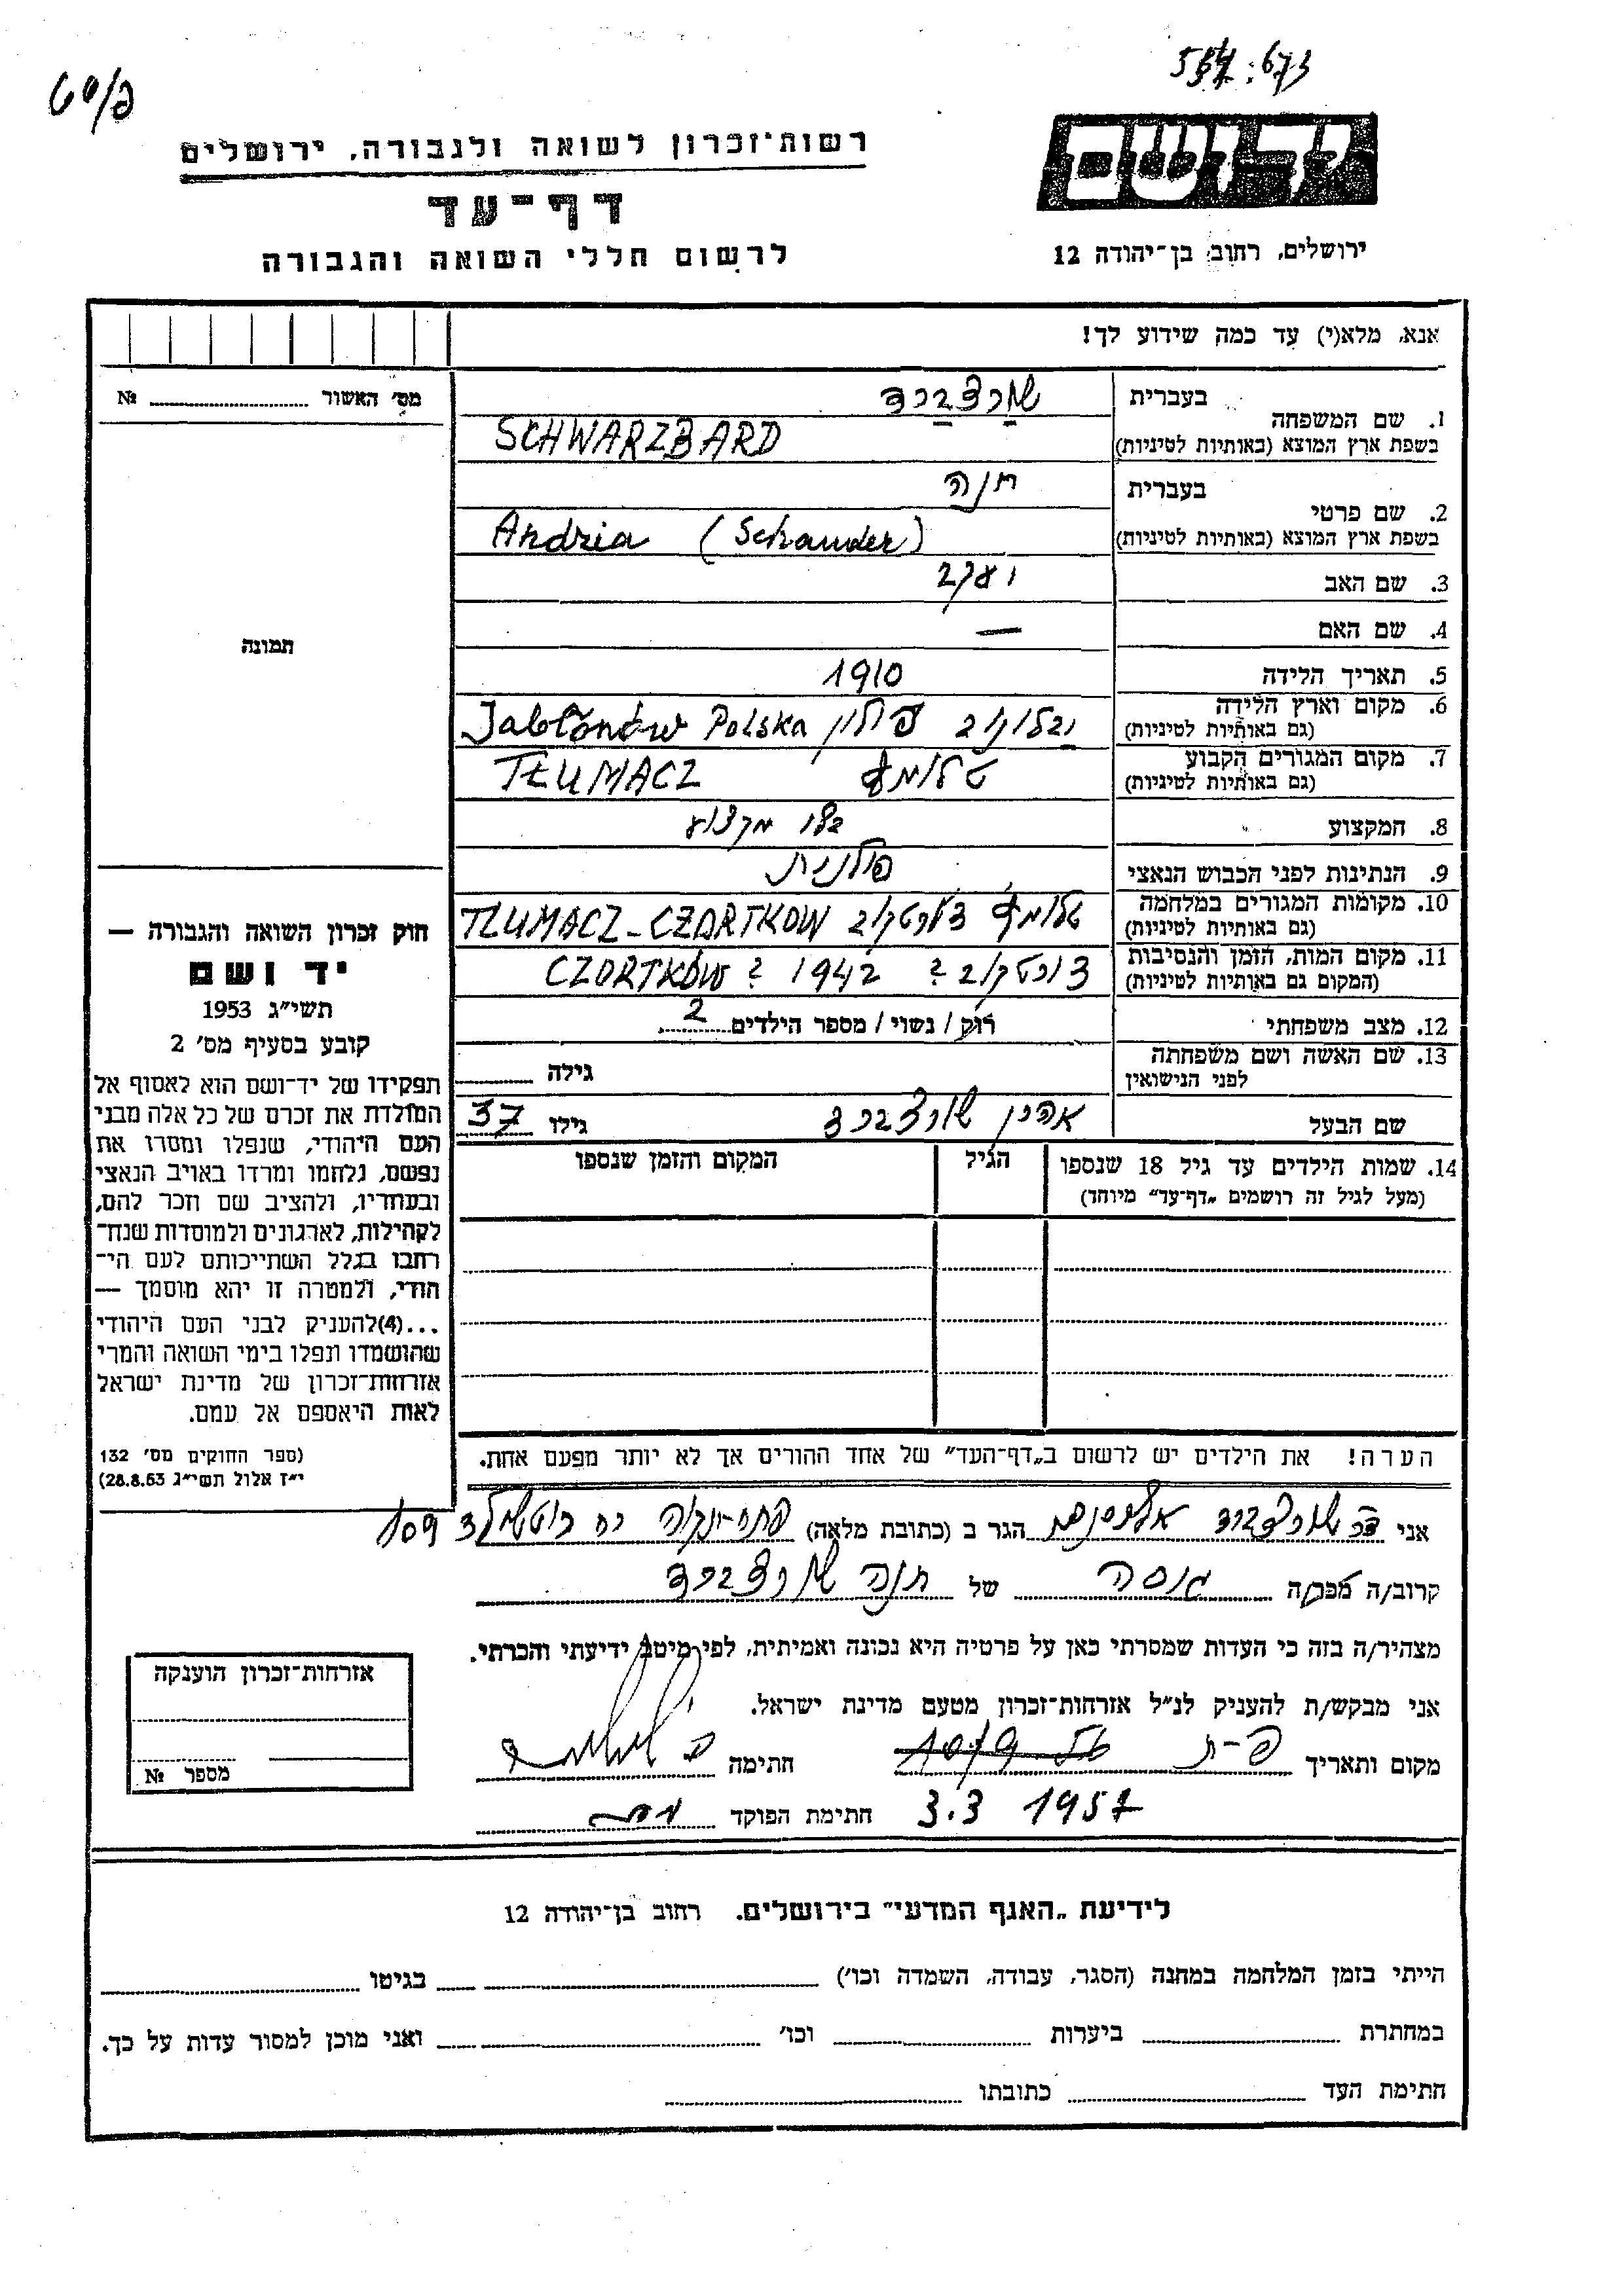 557:673
רשות־זכרון לשואה ולגבורה, ירושלים
יד ושם
דף־עד
ירושלים, רחוב בן־יהודה 12
לרשום חללי השואה והגבורה
אנא, מלא(י) עד כמה שידוע לך!
מס׳ האשור № ....................
1. שם המשפחה
בעברית שורצברד
בשפת ארץ המוצא (באותיות לטיניות) SCHWARZBARD
2. שם פרטי
בעברית חנה
בשפת ארץ המוצא (באותיות לטיניות) Andzia (Schauder)
3. שם האב יעקב
4. שם האם —
תמונה
5. תאריך הלידה 1910
6. מקום וארץ הלידה
(גם באותיות לטיניות) יבלונוב פולין Jabłonów Polska
7. מקום המגורים הקבוע
(גם באותיות לטיניות) טלומץ TŁUMACZ
8. המקצוע בלי מקצוע
9. הנתינות לפני הכבוש הנאצי פולנית
10. מקומות המגורים במלחמה
(גם באותיות לטיניות) טלומץ צ׳ורטקוב TŁUMACZ-CZORTKOW
11. מקום המות, הזמן והנסיבות
(המקום גם באותיות לטיניות) צורטקוב? 1942 CZORTKÓW?
12. מצב משפחתי רוק / נשוי / מספר הילדים 2
13. שם האשה ושם משפחתה
לפני הנישואין גילה
שם הבעל שורצברד גילו 37
14. שמות הילדים עד גיל 18 שנספו
(מעל לגיל זה רושמים „דף־עד״ מיוחד)
הגיל
המקום והזמן שנספו
חוק זכרון השואה והגבורה —
יד ושם
תשי״ג 1953
קובע בסעיף מס׳ 2
תפקידו של יד־ושם הוא לאסוף אל
המולדת את זכרם של כל אלה מבני
העם היהודי, שנפלו ומסרו את
נפשם, נלחמו ומרדו באויב הנאצי
ובעוזריו, ולהציב שם וזכר להם,
לקהילות, לארגונים ולמוסדות שנח־
רבו בגלל השתייכותם לעם הי־
הודי, ולמטרה זו יהא מוסמך —
...(4)להעניק לבני העם היהודי
שהושמדו ונפלו בימי השואה והמרי
אזרחות־זכרון של מדינת ישראל
לאות היאספם אל עמם.
(ספר החוקים מס׳ 132
י״ז אלול תשי״ג 28.8.53)
הערה! את הילדים יש לרשום ב„דף־העד״ של אחד ההורים אך לא יותר מפעם אחת.
אני דר שורצברד הגר ב (כתובת מלאה) פתח-תקוה רח רוטשילד 109
קרוב/ה מכר/ה גיסה של חנה שורצברד
מצהיר/ה בזה כי העדות שמסרתי כאן על פרטיה היא נכונה ואמיתית, לפי מיטב ידיעתי והכרתי.
אני מבקש/ת להעניק לנ״ל אזרחות־זכרון מטעם מדינת ישראל.
מקום ותאריך פ-ת חתימה
3.3 1957 חתימת הפוקד
אזרחות־זכרון הוענקה
מספר №
לידיעת „האגף המדעי״ בירושלים. רחוב בן־יהודה 12
הייתי בזמן המלחמה במחנה (הסגר, עבודה, השמדה וכו׳) בגיטו
במחתרת ביערות וכו׳ ואני מוכן למסור עדות על כך.
חתימת העד כתובתו